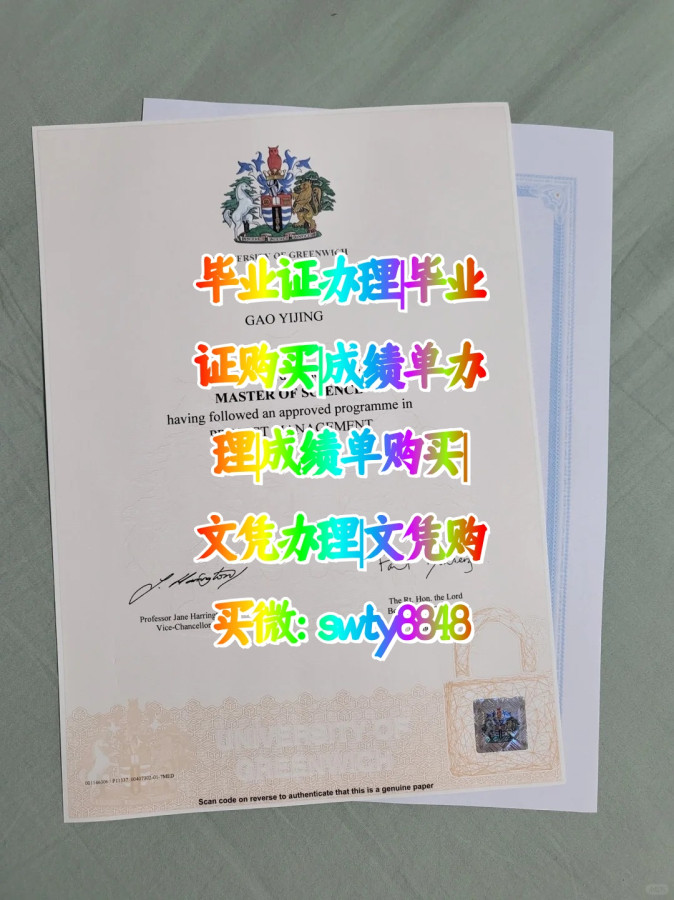 OF GREENWICH
毕业证办理|毕业
GAO YIJING
证购买|成绩单办
MASTER OF SCIENCE
having followed an approved programme in
MANAGEMENT
理|成绩单购买|
文凭办理|文凭购
Professor Jane
Vice-Chancellor
The Rt. Hon. the Lord
买微: ewty8848
UNIVERSITY OF
GREENWICH
Scan code on reverse to authenticate that this is a genuine paper